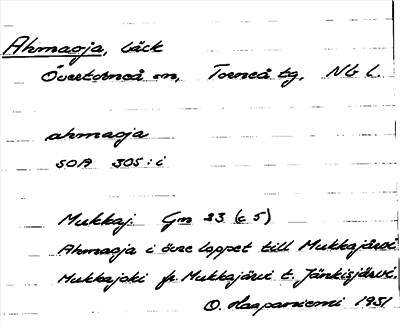 Ahmaoja, bäck
Övertorneå sn, Torneå tg, Nb L.
ahmaoja
SOA 305:i
Mukkaj. Gn 23 (c 5)
Ahmaoja i övre loppet till Mukkajärvi
Mukkajoki fr. Mukkajärvi t. Jänkisjärvi.
O. Haapaniemi 1951